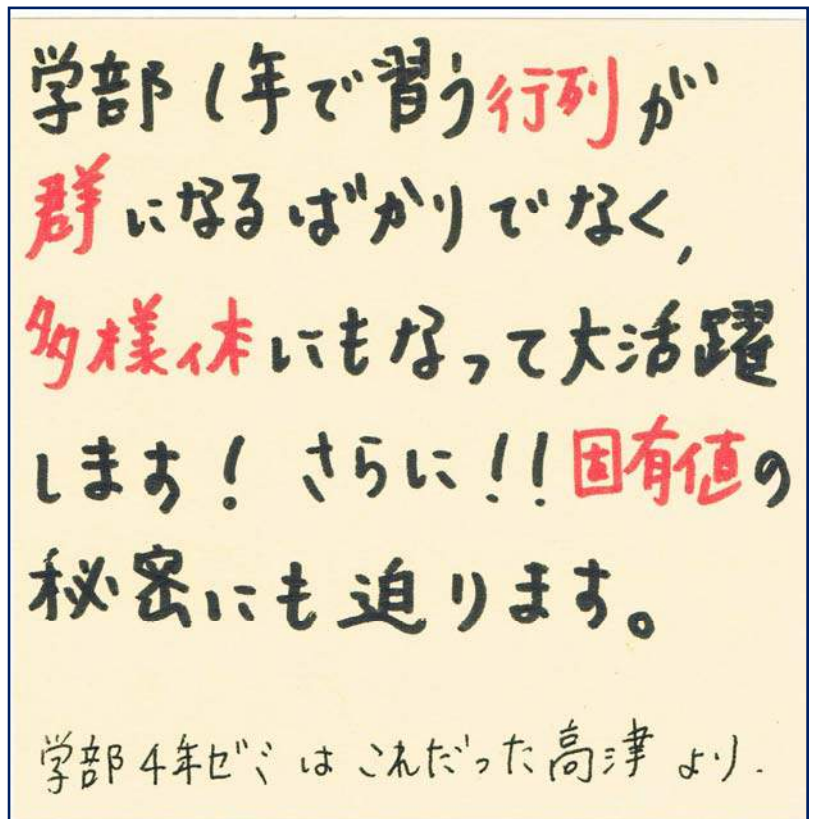 学部1年で習う行列が
群になるばかりでなく,
多様体にもなって大活躍
します! さらに!!固有値の
秘密にも迫ります。
学部4年ゼミはこれだった高津より.